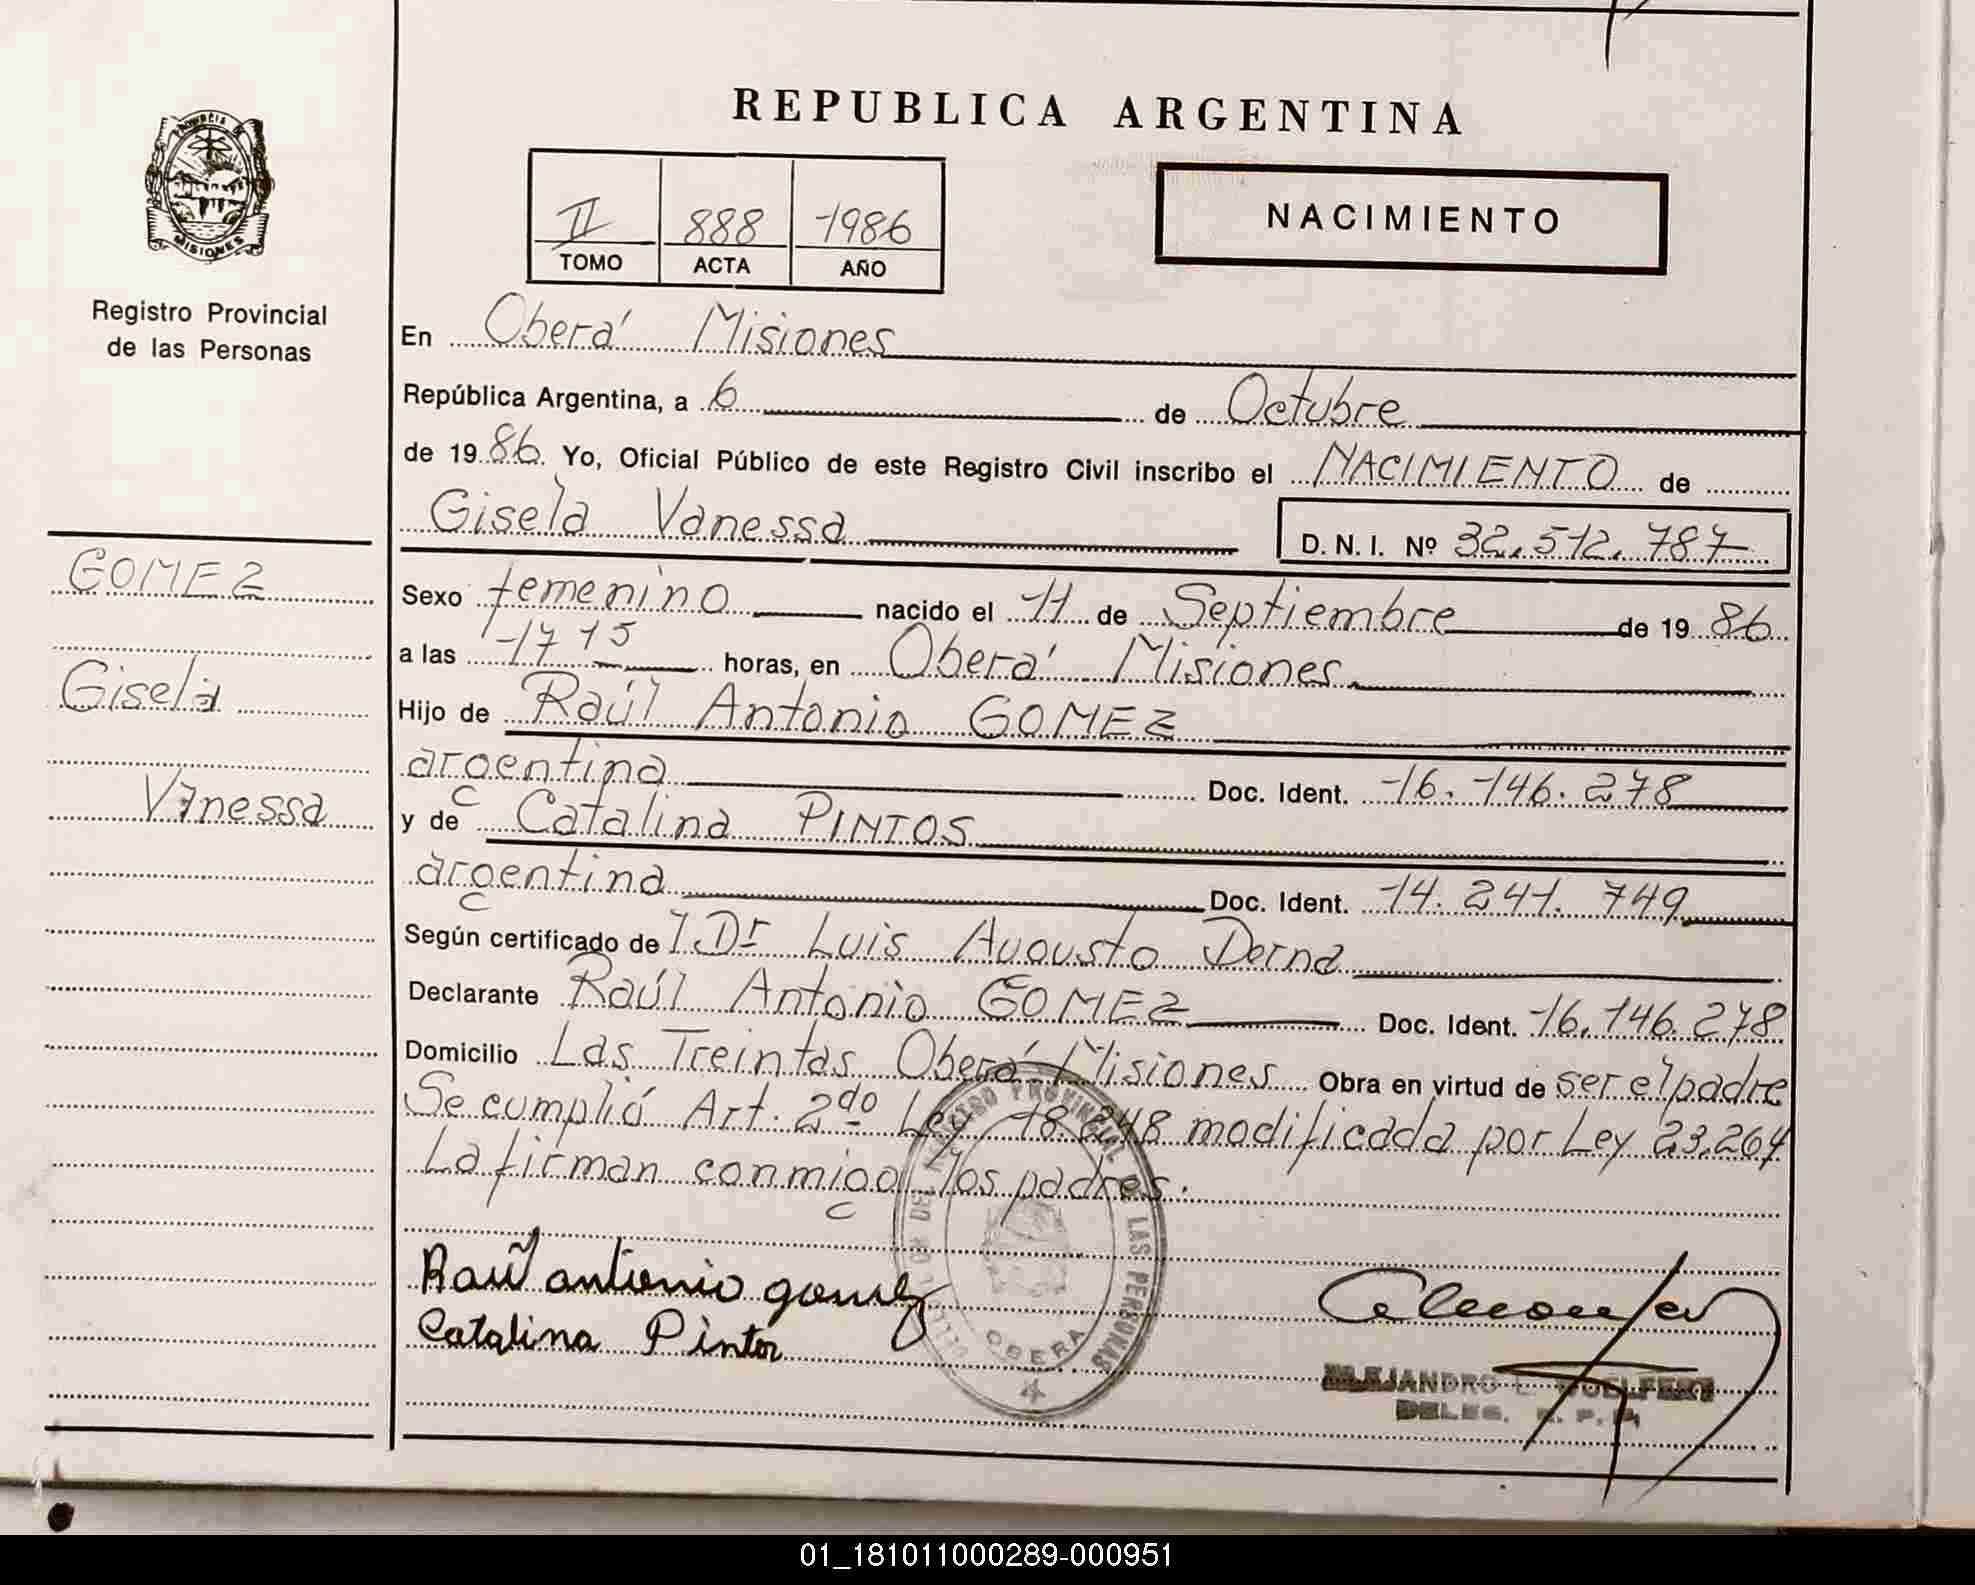 REPUBLICA ARGENTINA
PROVINCIA DE MISIONES
Registro Provincial
de las Personas
II 888 1986
TOMO ACTA AÑO
NACIMIENTO
En Oberá Misiones
República Argentina, a 6 de Octubre
de 1986 Yo, Oficial Público de este Registro Civil inscribo el NACIMIENTO de
Gisela Vanessa D.N.I. Nº 32.512.787
GOMEZ
Gisela
Vanessa
Sexo femenino nacido el 11 de Septiembre de 1986
a las 17 15 horas, en Oberá Misiones
Hijo de Raúl Antonio GOMEZ
argentina Doc. Ident. 16.146.278
y de Catalina PINTOS
argentina Doc. Ident. 14.241.749
Según certificado de Dr Luis Augusto Derna
Declarante Raúl Antonio GOMEZ Doc. Ident. 16.146.278
Domicilio Las Treintas Oberá Misiones Obra en virtud de ser el padre
Se cumplió Art. 2do Ley 18.248 modificada por Ley 23.264
La firman conmigo los padres.
REGISTRO PROVINCIAL DE LAS PERSONAS
OBERA
Raúl antonio gomez
Catalina Pintos
ALEJANDRO
DELEG. R. P. P.
01_181011000289-000951